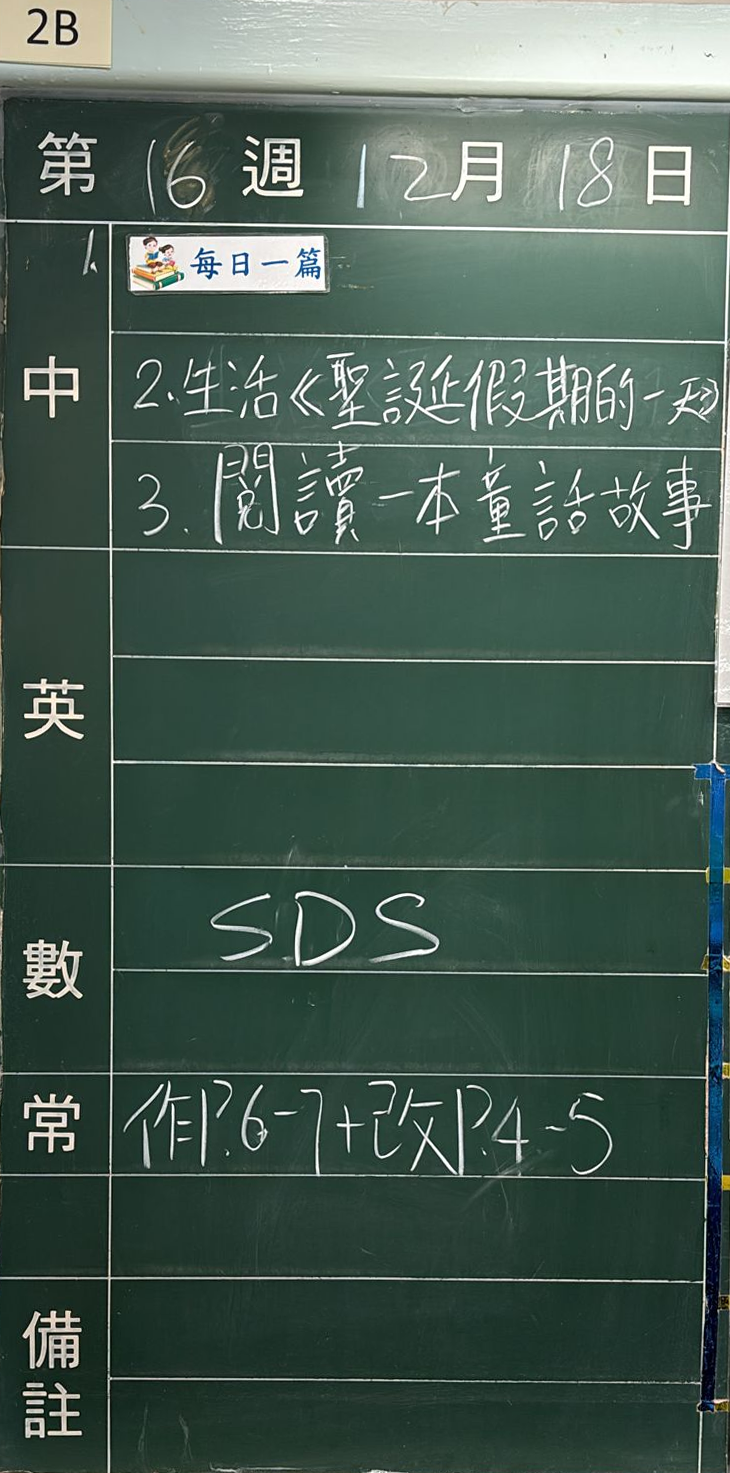 2B
第 16 週 12月 18日
中
1. 每日一篇
2.生活《聖誕假期的一天》
3. 閱讀一本童話故事
英
數
SDS
常
作P.6-7+改P.4-5
備註